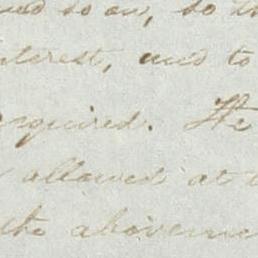 so on, so
interest, and to
required. He
allowed at
the above